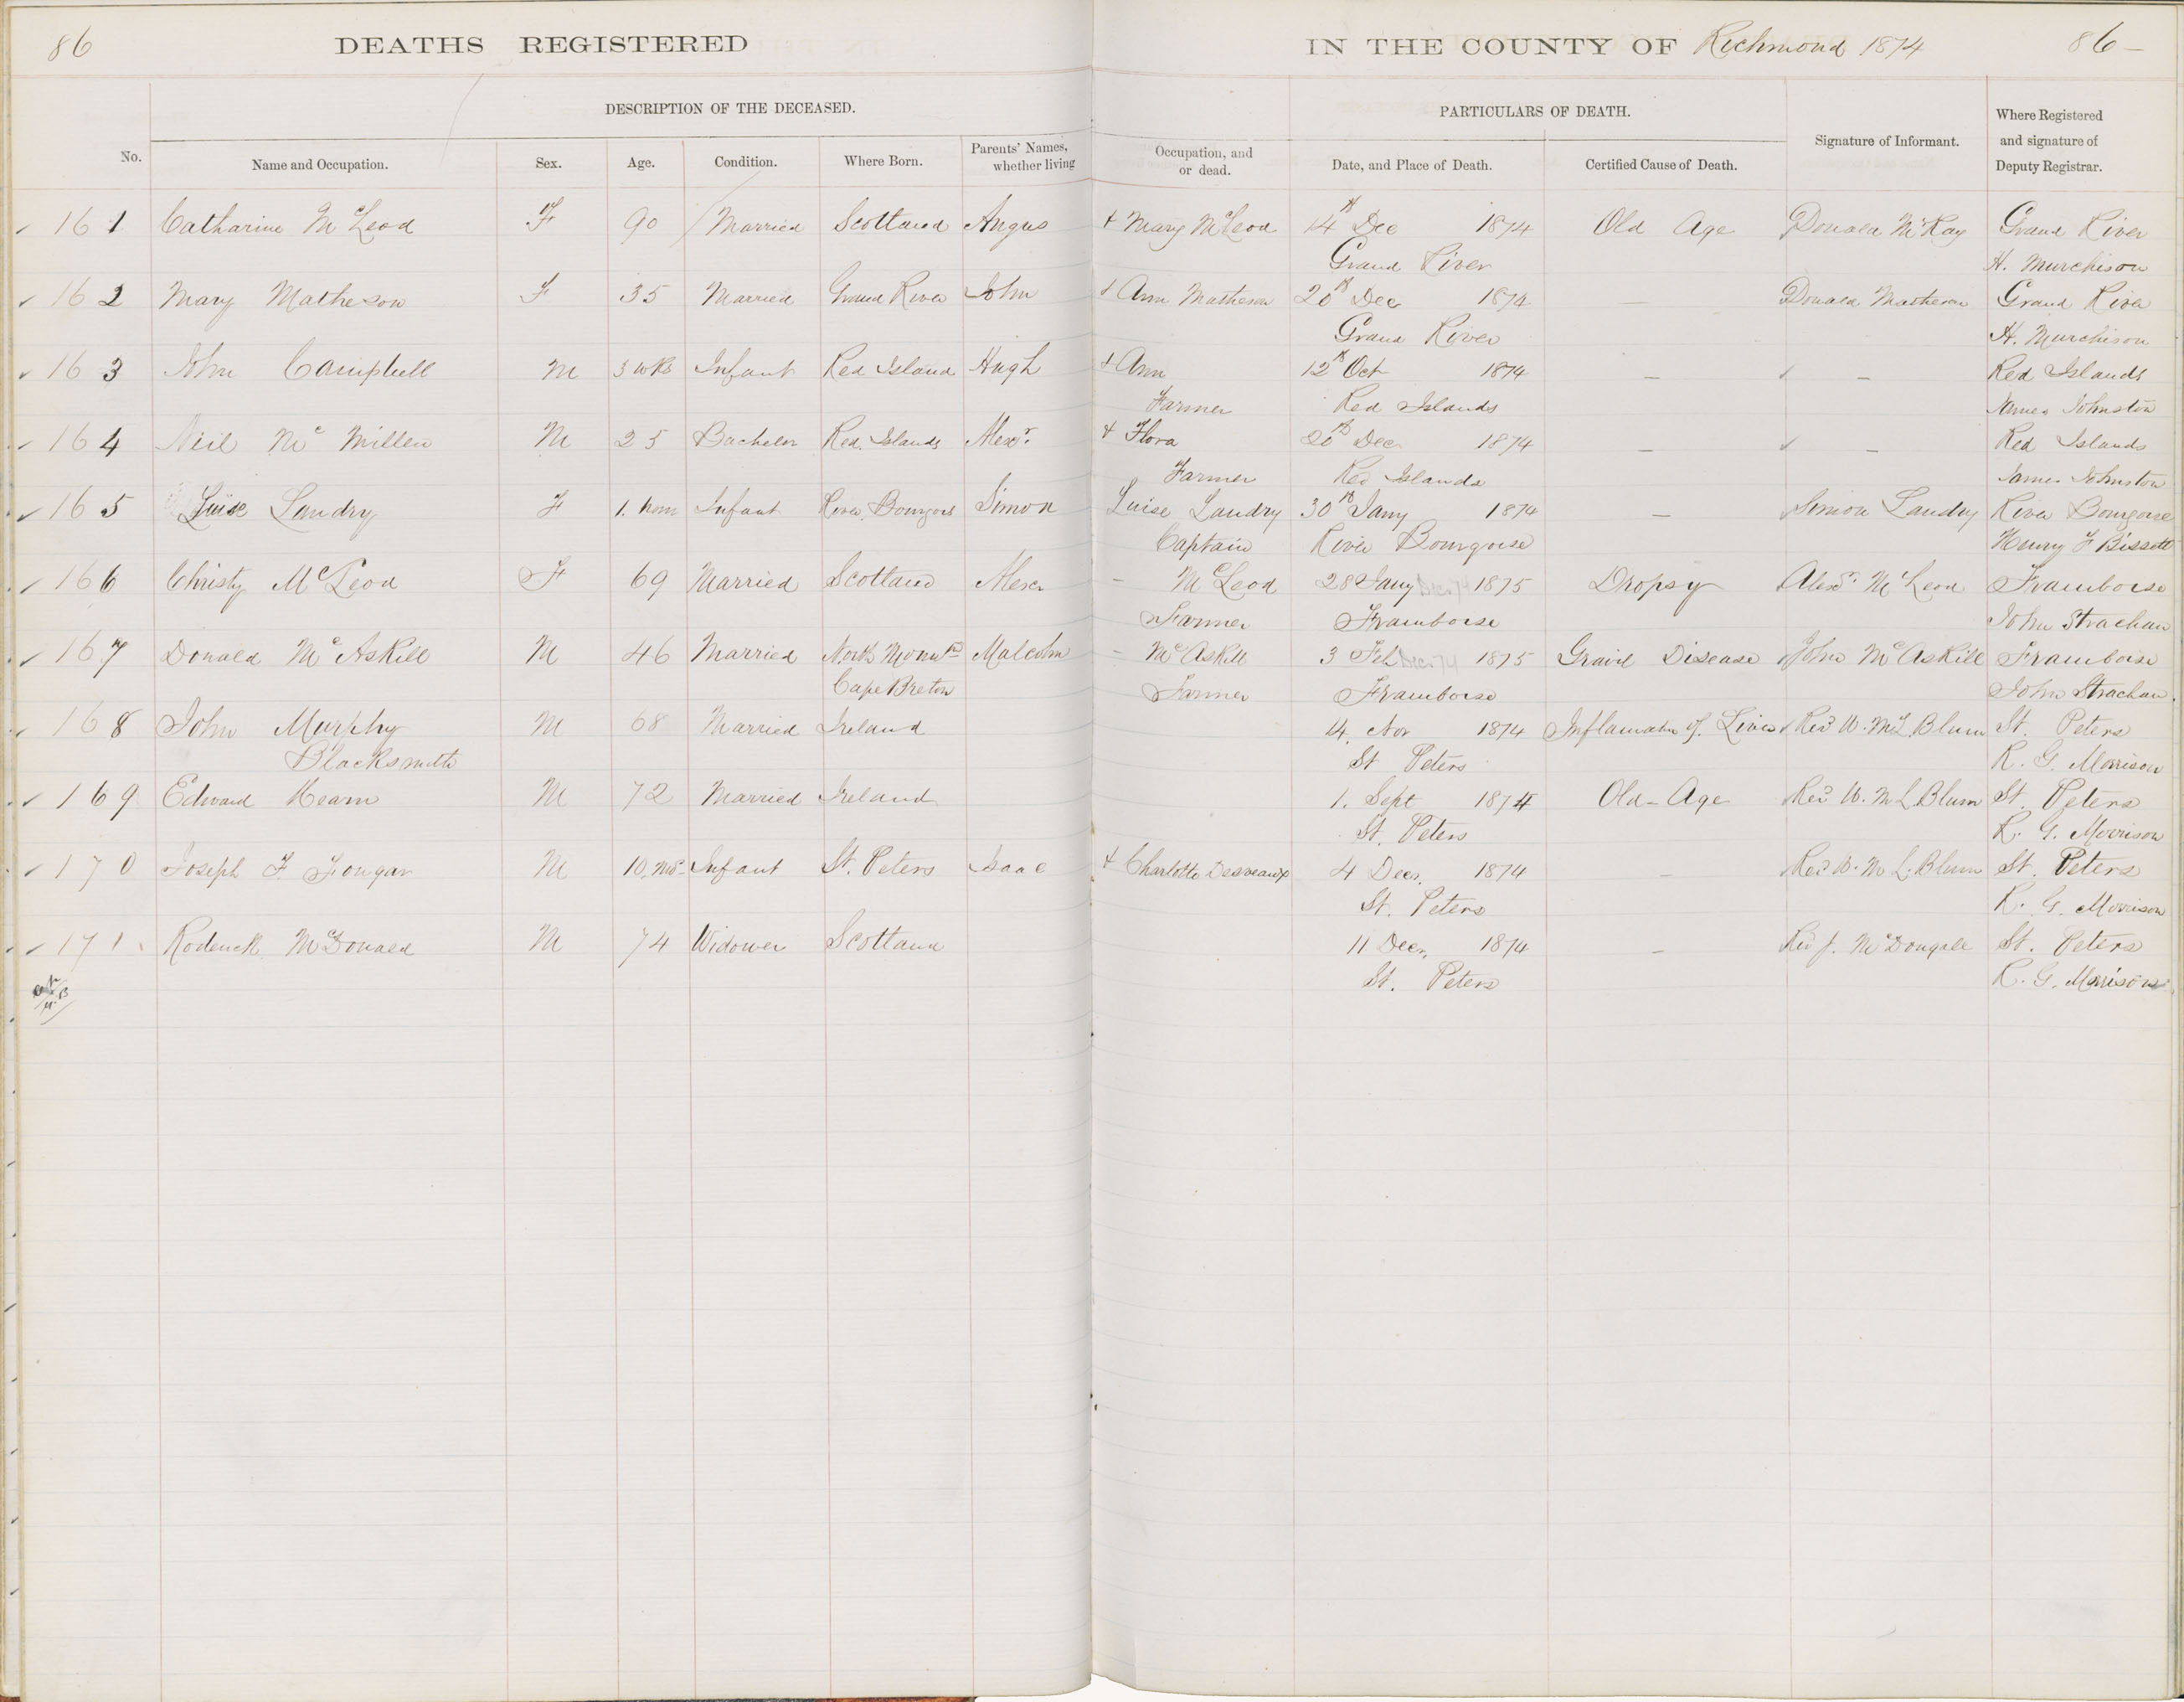 86 DEATHS REGISTERED IN THE COUNTY OF Richmond 1874 86
DESCRIPTION OF THE DECEASED. PARTICULARS OF DEATH.
No. Name and Occupation. Sex. Age. Condition. Where Born. Parents' Names, whether living Occupation, and or dead. Date, and Place of Death. Certified Cause of Death. Signature of Informant. Where Registered and signature of Deputy Registrar.
161 Catharine McLeod F 90 Married Scotland Angus + Mary McLeod 14th Dec 1874 Old Age Donald McKay Grand River
Grand River H. Murchison
162 Mary Matheson F 35 Married Grand River John + Ann Matheson 20th Dec 1874 — Donald Matheson Grand River
Grand River H. Murchison
163 John Campbell M 3 wks Infant Red Island Hugh + Ann 12th Oct 1874 — — Red Islands
Farmer Red Islands James Johnston
164 Neil McMillen M 25 Bachelor Red Islands Alexr. + Flora 20th Dec 1874 — — Red Islands
Farmer Red Islands James Johnston
165 Luise Landry F 1. hour Infant River Bourgois Simon Luise Landry 30th Jany 1874 — Simon Landry River Bourgoise
Captain River Bourgoise Henry F Bissett
166 Christy McLeod F 69 Married Scotland Alexr — McLeod 28 Jany Dec 74 1875 Dropsy Alexr. McLeod Framboise
Farmer Framboise John Strachan
167 Donald McAskill M 46 Married North Malcolm — McAskill 3 Feb Dec 74 1875 Disease John McAskill Framboise
Cape Breton Farmer Framboise John Strachan.
168 John Murphy M 68 Married Ireland 4. Nov 1874 Inflamatn of Liver Revd W. McL. Blum St. Peters
Blacksmith St Peters R. G. Morrison
169 Edward Kearn M 72 Married Ireland 1. Sept 1874 Old-Age Revd W. McL Blum St. Peters
St. Peters R. G. Morrison
170 Joseph F. Fougar M 10. mos. Infant St. Peters Isaac + Charlotte Desveaux 4 Decr. 1874 — Revd W. McL. Blum St. Peters
St. Peters R. G. Morrison
171 Roderick McDonald M 74 Widower Scotland 11 Decr. 1874 — Rev J. McDougall St. Peters
St. Peters R. G. Morrison